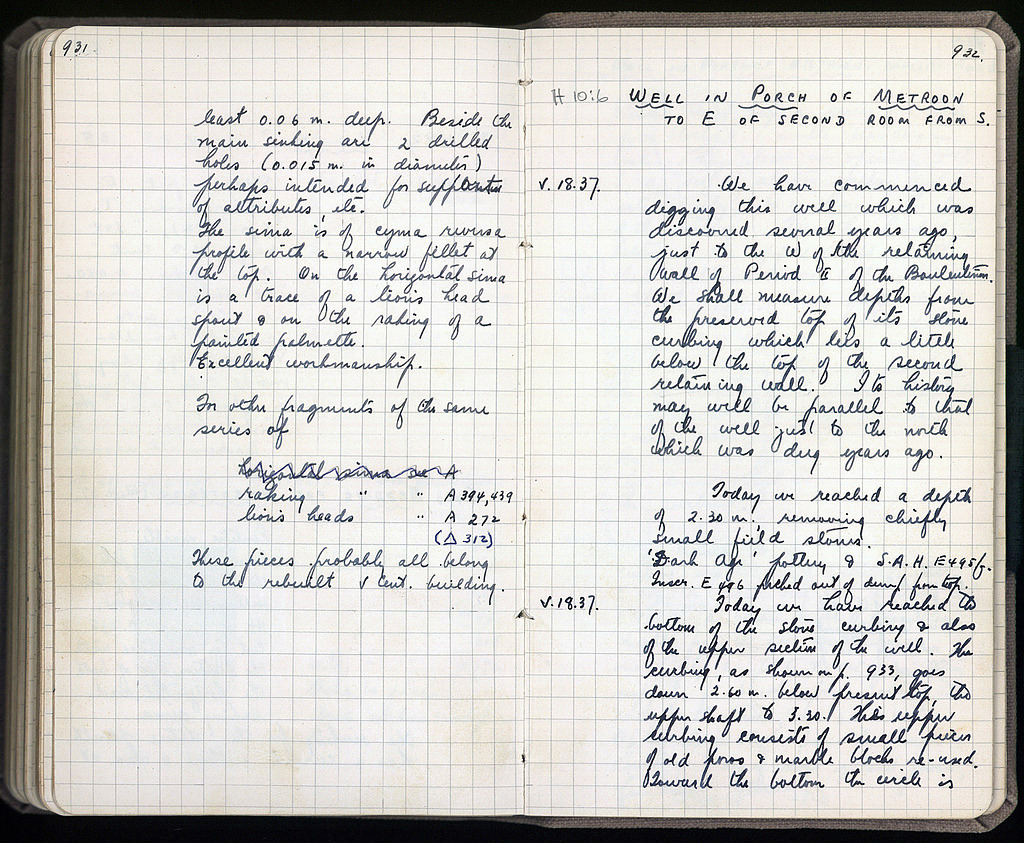 931
least 0.06 m. deep. Beside the
main sinking are 2 drilled
holes (0.015 m. in diameter)
perhaps intended for
of attributes, etc.
The sima is of cyma reversa
profile with a narrow fillet at
the top. On the horizontal sima
is a trace of a lion's head
spout & on the raking of a
painted palmette.
Excellent workmanship.
For other fragments of the same
series of
horizontal sima see A
raking " " A 394, 439
lion's heads " A 272
(Δ 312)
These pieces probably all belong
to the rebuilt V cent. building.
932.
H 10:6 WELL IN PORCH OF METROON
TO E OF SECOND ROOM FROM S.
V.18.37. We have commenced
digging this well which was
discovered several years ago,
just to the W of the retaining
wall of Period II of the Bouleuterion.
We shall measure depths from
the preserved top of its stone
curbing which lies a little
below the top of the second
retaining wall. Its history
may well be parallel to that
of the well just to the north
which was dug years ago.
Today we reached a depth
of 2.30 m., removing chiefly
small field stones.
'Dark Age' pottery & S.A.H. E495f.
Inscr. E 496 picked out of dump from top.
V.18.37. Today we have reached the
bottom of the stone curbing & also
of the upper section of the well. The
curbing, as shown on p. 933, goes
down 2.60 m. below present top, the
upper shaft to 3.30. This upper
curbing consists of small pieces
of old poros & marble blocks re-used.
Toward the bottom the circle is